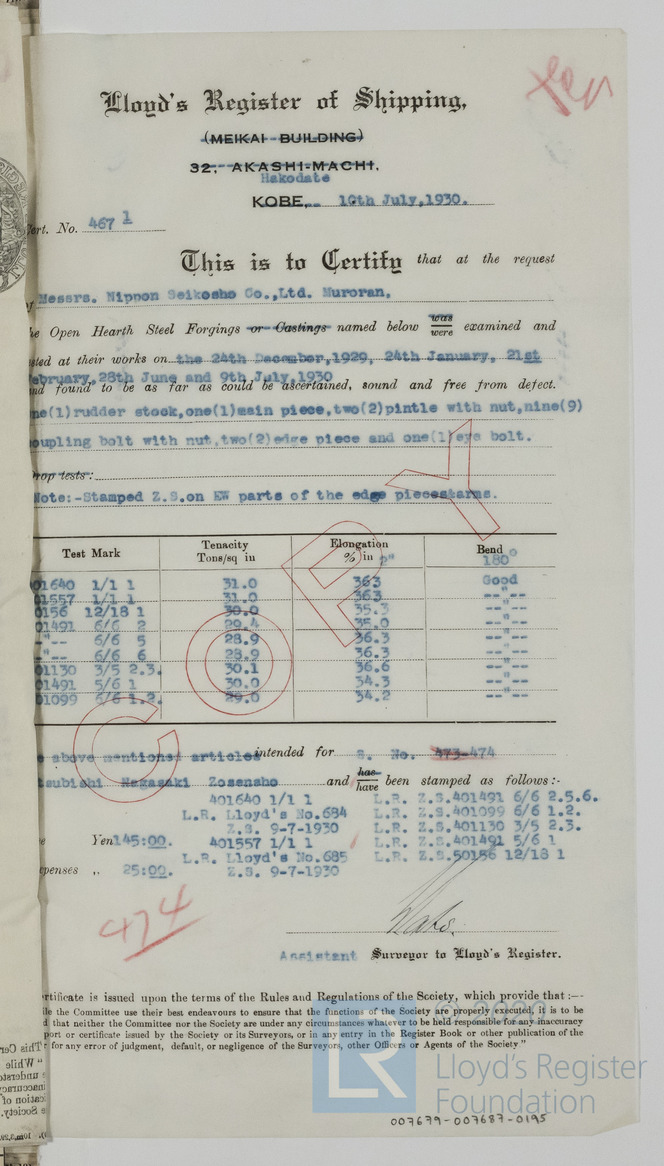 Lloyd's Register of Shipping,
(MEIKAI BUILDING)
32, AKASHI-MACHI,
Hakodate
KOBE, 10th July, 1930.
ert. No. 467 1
This is to Certify that at the request
Messrs. Nippon Seikosho Co., Ltd. Muroran,
he Open Hearth Steel Forgings or Castings named below was were examined and
sted at their works on the 24th December, 1929, 24th January, 21st
ebruary, 28th June and 9th July, 1930
nd found to be as far as could be ascertained, sound and free from defect.
ne(1)rudder stock, one(1)main piece, two(2)pintle with nut, nine(9)
oupling bolt with nut, two(2)edge piece and one(1)eye bolt.
rop tests:
Note:-Stamped Z.S. on EW parts of the edge piecesterms.
Test Mark Tenacity Tons/sq in Elongation % in 2" Bend 180°
01640 1/1 1 31.0 363 Good
01557 1/1 1 31.0 363 --"--
0156 12/18 1 30.0 35.3 --"--
01491 6/6 2 29.4 35.0 --"--
-"-- 6/6 5 28.9 36.3 --"--
-"-- 6/6 6 28.9 36.3 --"--
01130 3/5 2.3. 30.1 36.6 --"--
01491 5/6 1 30.0 34.3 --"--
01099 6/6 1.2. 29.0 34.2 --"--
COPY
e above mentioned articles intended for S. No. 473-474
tsubishi Nagasaki Zosensho and has have been stamped as follows:-
401640 1/1 1 L.R. Z.S.401491 6/6 2.5.6.
L.R. Lloyd's No.684 L.R. Z.S.401099 6/6 1.2.
Z.S. 9-7-1930 L.R. Z.S.401130 3/5 2.3.
e Yen 145:00. 401557 1/1 1 L.R. Z.S.401491 5/6 1
L.R. Lloyd's No.685 L.R. Z.S.50156 12/18 1
xpenses „ 25:00. Z.S. 9-7-1930
474
Assistant Surveyor to Lloyd's Register.
rtificate is issued upon the terms of the Rules and Regulations of the Society, which provide that :—
ile the Committee use their best endeavours to ensure that the functions of the Society are properly executed, it is to be
d that neither the Committee nor the Society are under any circumstances whatever to be held responsible for any inaccuracy
port or certificate issued by the Society or its Surveyors, or in any entry in the Register Book or other publication of the
r for any error of judgment, default, or negligence of the Surveyors, other Officers or Agents of the Society."
LR
Lloyd's Register
Foundation
007679-007687-0195